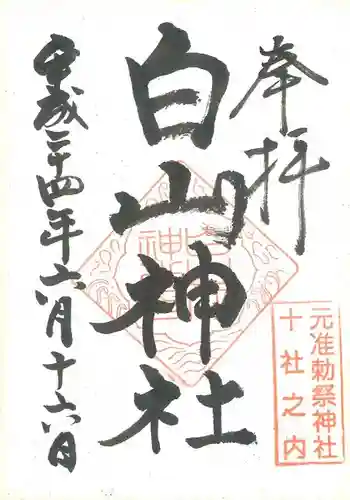 奉拝
元准勅祭神社
十社之内
白山神社
平成二十四年六月十六日